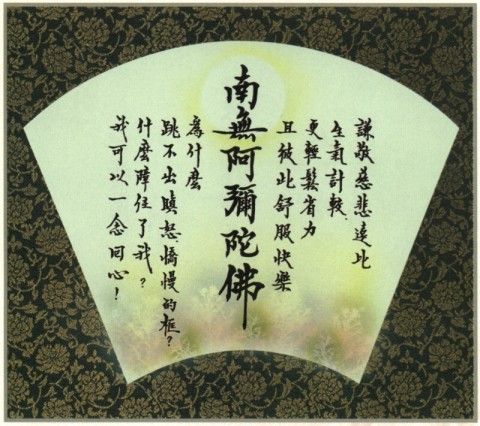 謙敬慈悲遠比
生氣計較、
更輕鬆省力
且彼此舒服快樂
南無阿彌陀佛
為什麼
跳不出瞋怒憍慢的框？
什麼障住了我？
我可以一念回心！